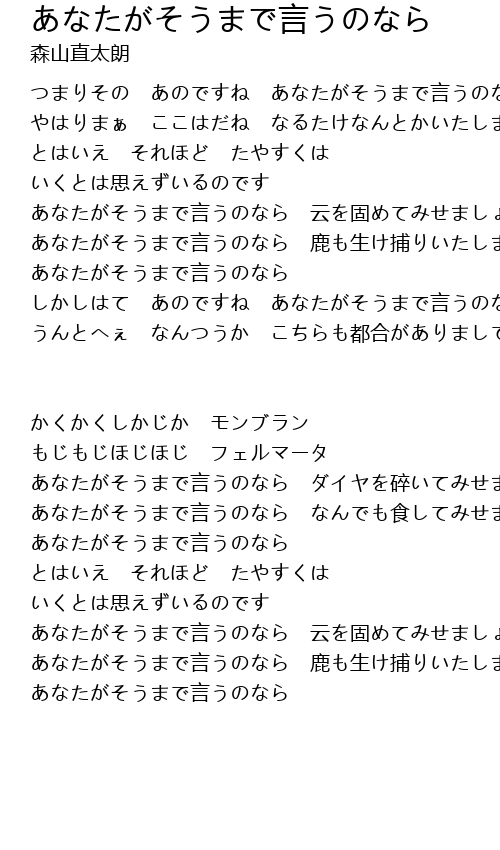 あなたがそうまで言うのなら
森山直太朗
つまりその　あのですね　あなたがそうまで言うのな
やはりまぁ　ここはだね　なるたけなんとかいたしま
とはいえ　それほど　たやすくは
いくとは思えずいるのです
あなたがそうまで言うのなら　云を固めてみせましょ
あなたがそうまで言うのなら　鹿も生け捕りいたしま
あなたがそうまで言うのなら
しかしはて　あのですね　あなたがそうまで言うのな
うんとへぇ　なんつうか　こちらも都合がありまして
かくかくしかじか　モンブラン
もじもじほじほじ　フェルマータ
あなたがそうまで言うのなら　ダイヤを砕いてみせま
あなたがそうまで言うのなら　なんでも食してみせま
あなたがそうまで言うのなら
とはいえ　それほど　たやすくは
いくとは思えずいるのです
あなたがそうまで言うのなら　云を固めてみせましょ
あなたがそうまで言うのなら　鹿も生け捕りいたしま
あなたがそうまで言うのなら